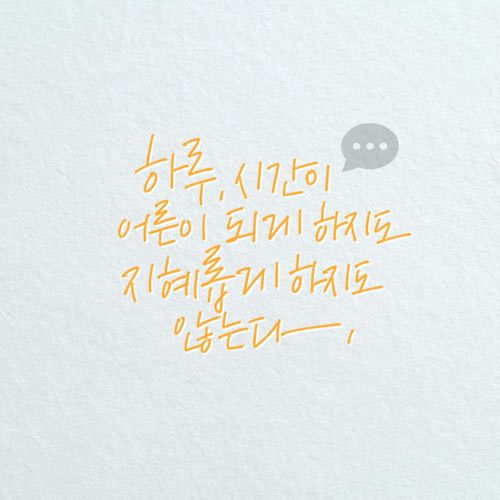 하루, 시간이
어른이 되게 하지도
지혜롭게 하지도
않는다,